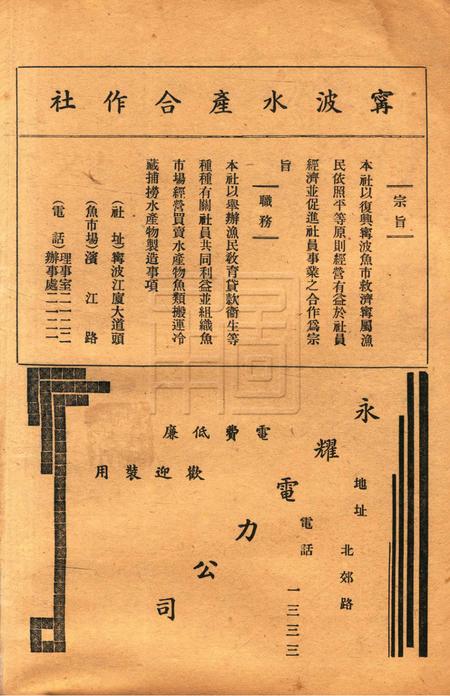 寗波水產合作社
宗旨
本社以復興寗波魚市救濟寗屬漁
民依照平等原則經營有益於社員
經濟並促進社員事業之合作爲宗
旨
職務
本社以舉辦漁民教育貸款衞生等
種種有關社員共同利益並組織魚
市場經營買賣水產物魚類搬運冷
藏捕撈水產物製造事項
(社址)寗波江廈大道頭
(魚市場)濱江路
(電話)理事室二一二二
辦事處二一二一
永耀電力公司
地址 北郊路
電話 一三三三
電費低廉
歡迎裝用